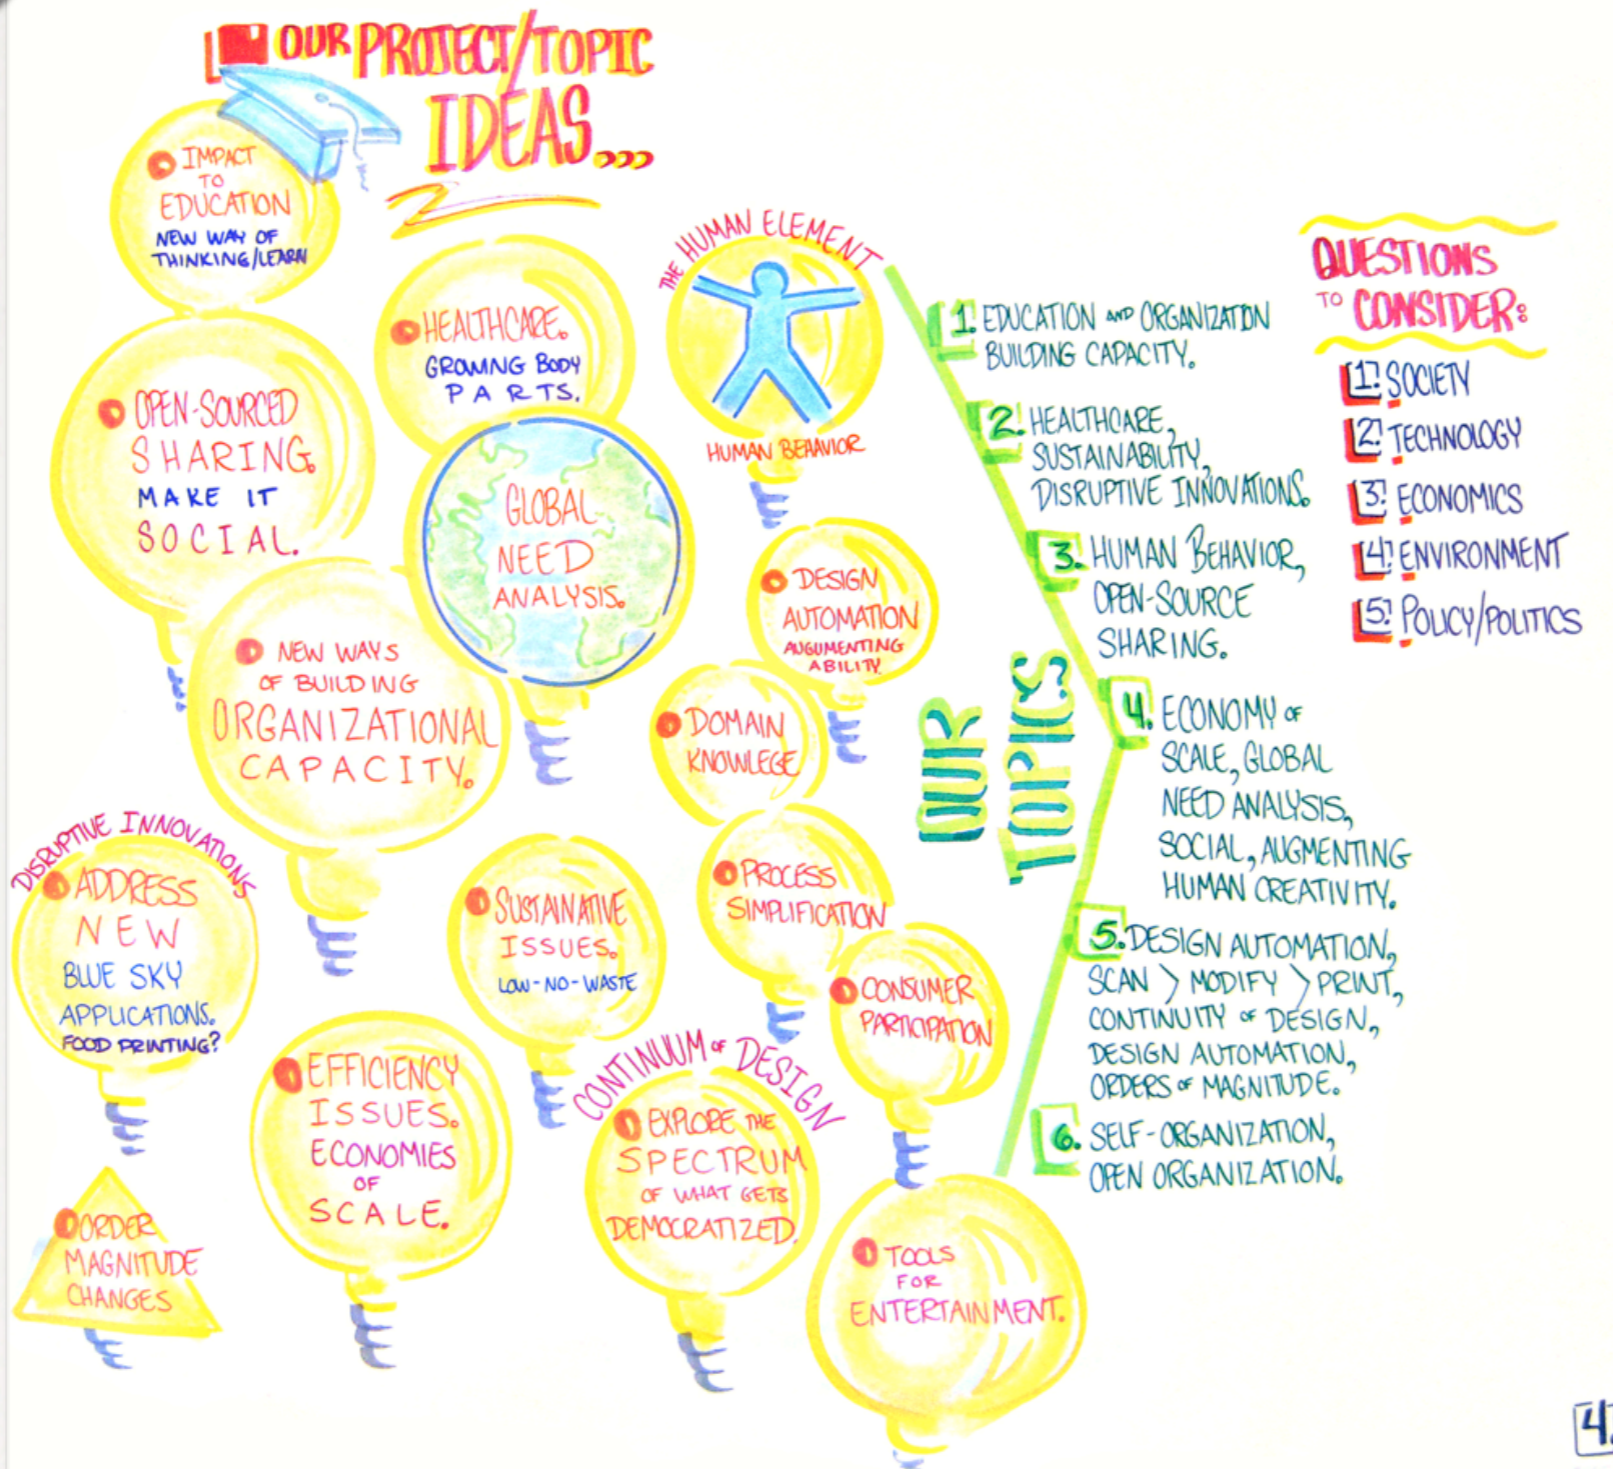 OUR PROJECT/TOPIC
IDEAS...
IMPACT
TO
EDUCATION
NEW WAY OF
THINKING/LEARN
HEALTHCARE.
GROWING BODY
PARTS.
THE HUMAN ELEMENT
HUMAN BEHAVIOR
OPEN-SOURCED
SHARING.
MAKE IT
SOCIAL.
GLOBAL
NEED
ANALYSIS.
DESIGN
AUTOMATION
AUGUMENTING
ABILITY.
NEW WAYS
OF BUILDING
ORGANIZATIONAL
CAPACITY.
DOMAIN
KNOWLEGE
DISRUPTIVE INNOVATIONS
ADDRESS
NEW
BLUE SKY
APPLICATIONS.
FOOD PRINTING?
SUSTAINATIVE
ISSUES.
LOW-NO-WASTE
PROCESS
SIMPLIFICATION
CONSUMER
PARTICIPATION
EFFICIENCY
ISSUES.
ECONOMIES
OF
SCALE.
CONTINUUM OF DESIGN
EXPLORE THE
SPECTRUM
OF WHAT GETS
DEMOCRATIZED.
ORDER
MAGNITUDE
CHANGES
TOOLS
FOR
ENTERTAINMENT.
OUR
TOPICS
1. EDUCATION AND ORGANIZATION
BUILDING CAPACITY.
2. HEALTHCARE,
SUSTAINABILITY,
DISRUPTIVE INNOVATIONS.
3. HUMAN BEHAVIOR,
OPEN-SOURCE
SHARING.
4. ECONOMY OF
SCALE, GLOBAL
NEED ANALYSIS,
SOCIAL, AUGMENTING
HUMAN CREATIVITY.
5. DESIGN AUTOMATION,
SCAN > MODIFY > PRINT,
CONTINUITY OF DESIGN,
DESIGN AUTOMATION,
ORDERS OF MAGNITUDE.
6. SELF-ORGANIZATION,
OPEN ORGANIZATION.
QUESTIONS
TO CONSIDER:
1. SOCIETY
2. TECHNOLOGY
3. ECONOMICS
4. ENVIRONMENT
5. POLICY/POLITICS
4.